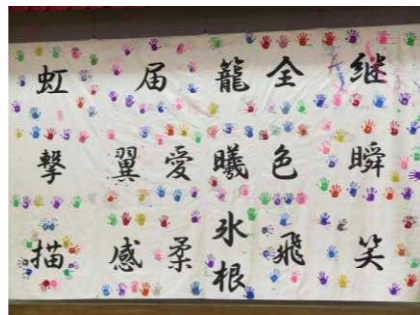 虹 届 籠 全 継
撃 翼 愛 曦 色 瞬
描 感 柔 氷根 飛 笑